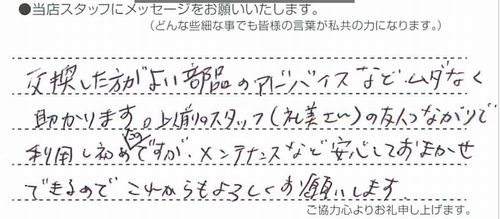 ●当店スタッフにメッセージをお願いいたします。
(どんな些細な事でも皆様の言葉が私共の力になります。)
交換した方がよい部品のアドバイスなどムダなく
助かります。以前のスタッフ(礼美さん)の友人つながりで
利用し初めたのですが、メンテナンスなど安心しておまかせ
できるのでこれからもよろしくお願いします。
ご協力心よりお礼申し上げます。